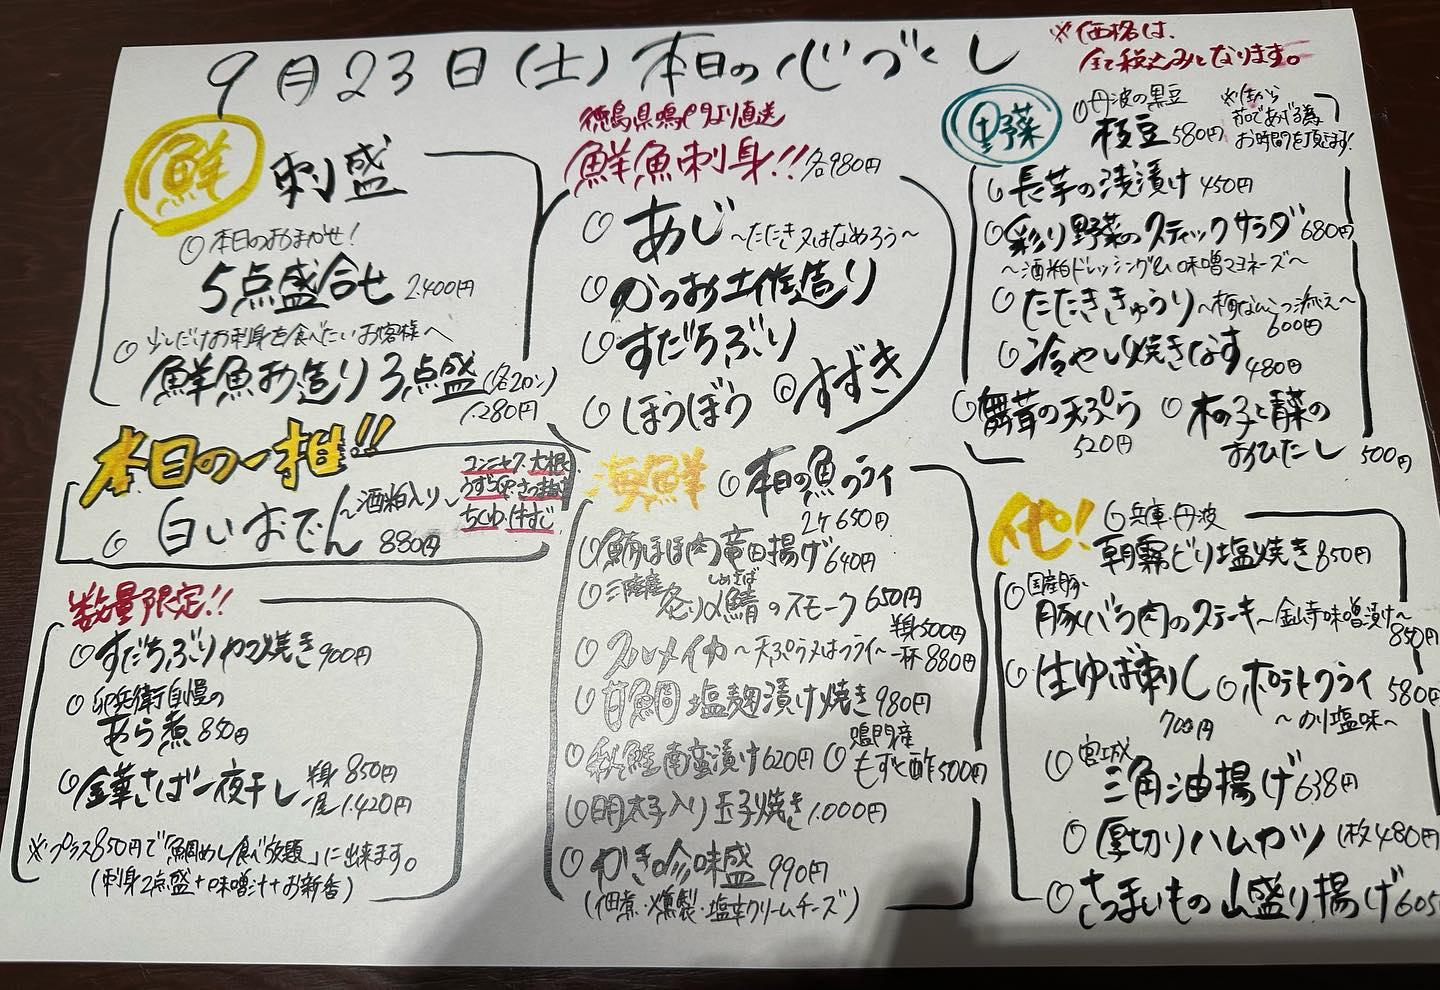 9月23日(土)本日の心づくし
※価格は、
全て税込みとなります。
鮮 刺盛
本日のおまかせ!
5点盛合せ 2,400円
少しだけお刺身を食べたいお客様へ
鮮魚お造り3点盛(各2カン)
1,280円
本日の一推!!
白いおでん〜酒粕入り〜 880円
コンニャク・大根
ちくわ・牛すじ
数量限定!!
すだちぶりカマ焼き 900円
卯兵衛自慢の
あら煮 850円
金華さば一夜干し 半身 850円
一尾 1,420円
※プラス850円で「鯛めし食べ放題」に出来ます。
(刺身2点盛+味噌汁+お新香)
徳島県鳴門より直送
鮮魚刺身!! 各980円
あじ〜たたき又はなめろう〜
かつお土佐造り
すだちぶり
ほうぼう
すずき
海鮮
本日の魚フライ
2ケ 650円
鮪ほほ肉竜田揚げ 640円
炙り〆鯖のスモーク 650円
しめさば
スルメイカ〜天ぷら又はフライ〜
半身500円
一杯 880円
甘鯛 塩麹漬け焼き 980円
秋鮭南蛮漬け 620円
鳴門産
もずく酢 500円
明太子入り玉子焼き 1,000円
かき吟味盛 990円
(佃煮・燻製・塩辛クリームチーズ)
野菜
丹波の黒豆
枝豆 580円
※生から
茹であげる為
お時間を頂きます!
長芋の浅漬け 450円
彩り野菜のスティックサラダ 680円
〜酒粕ドレッシング&味噌マヨネーズ〜
たたききゅうり〜梅なんこつ添え〜
600円
冷やし焼きなす 480円
舞茸の天ぷら
520円
木の子と青菜の
おひたし 500円
他!
兵庫・丹波
朝霧どり塩焼き 850円
国産豚
豚バラ肉のステーキ〜金山寺味噌漬け〜
850円
生ゆば刺し
700円
ポテトフライ 580円
〜のり塩味〜
宮城
三角油揚げ 638円
厚切りハムカツ 1枚480円
さつまいもの山盛り揚げ 605